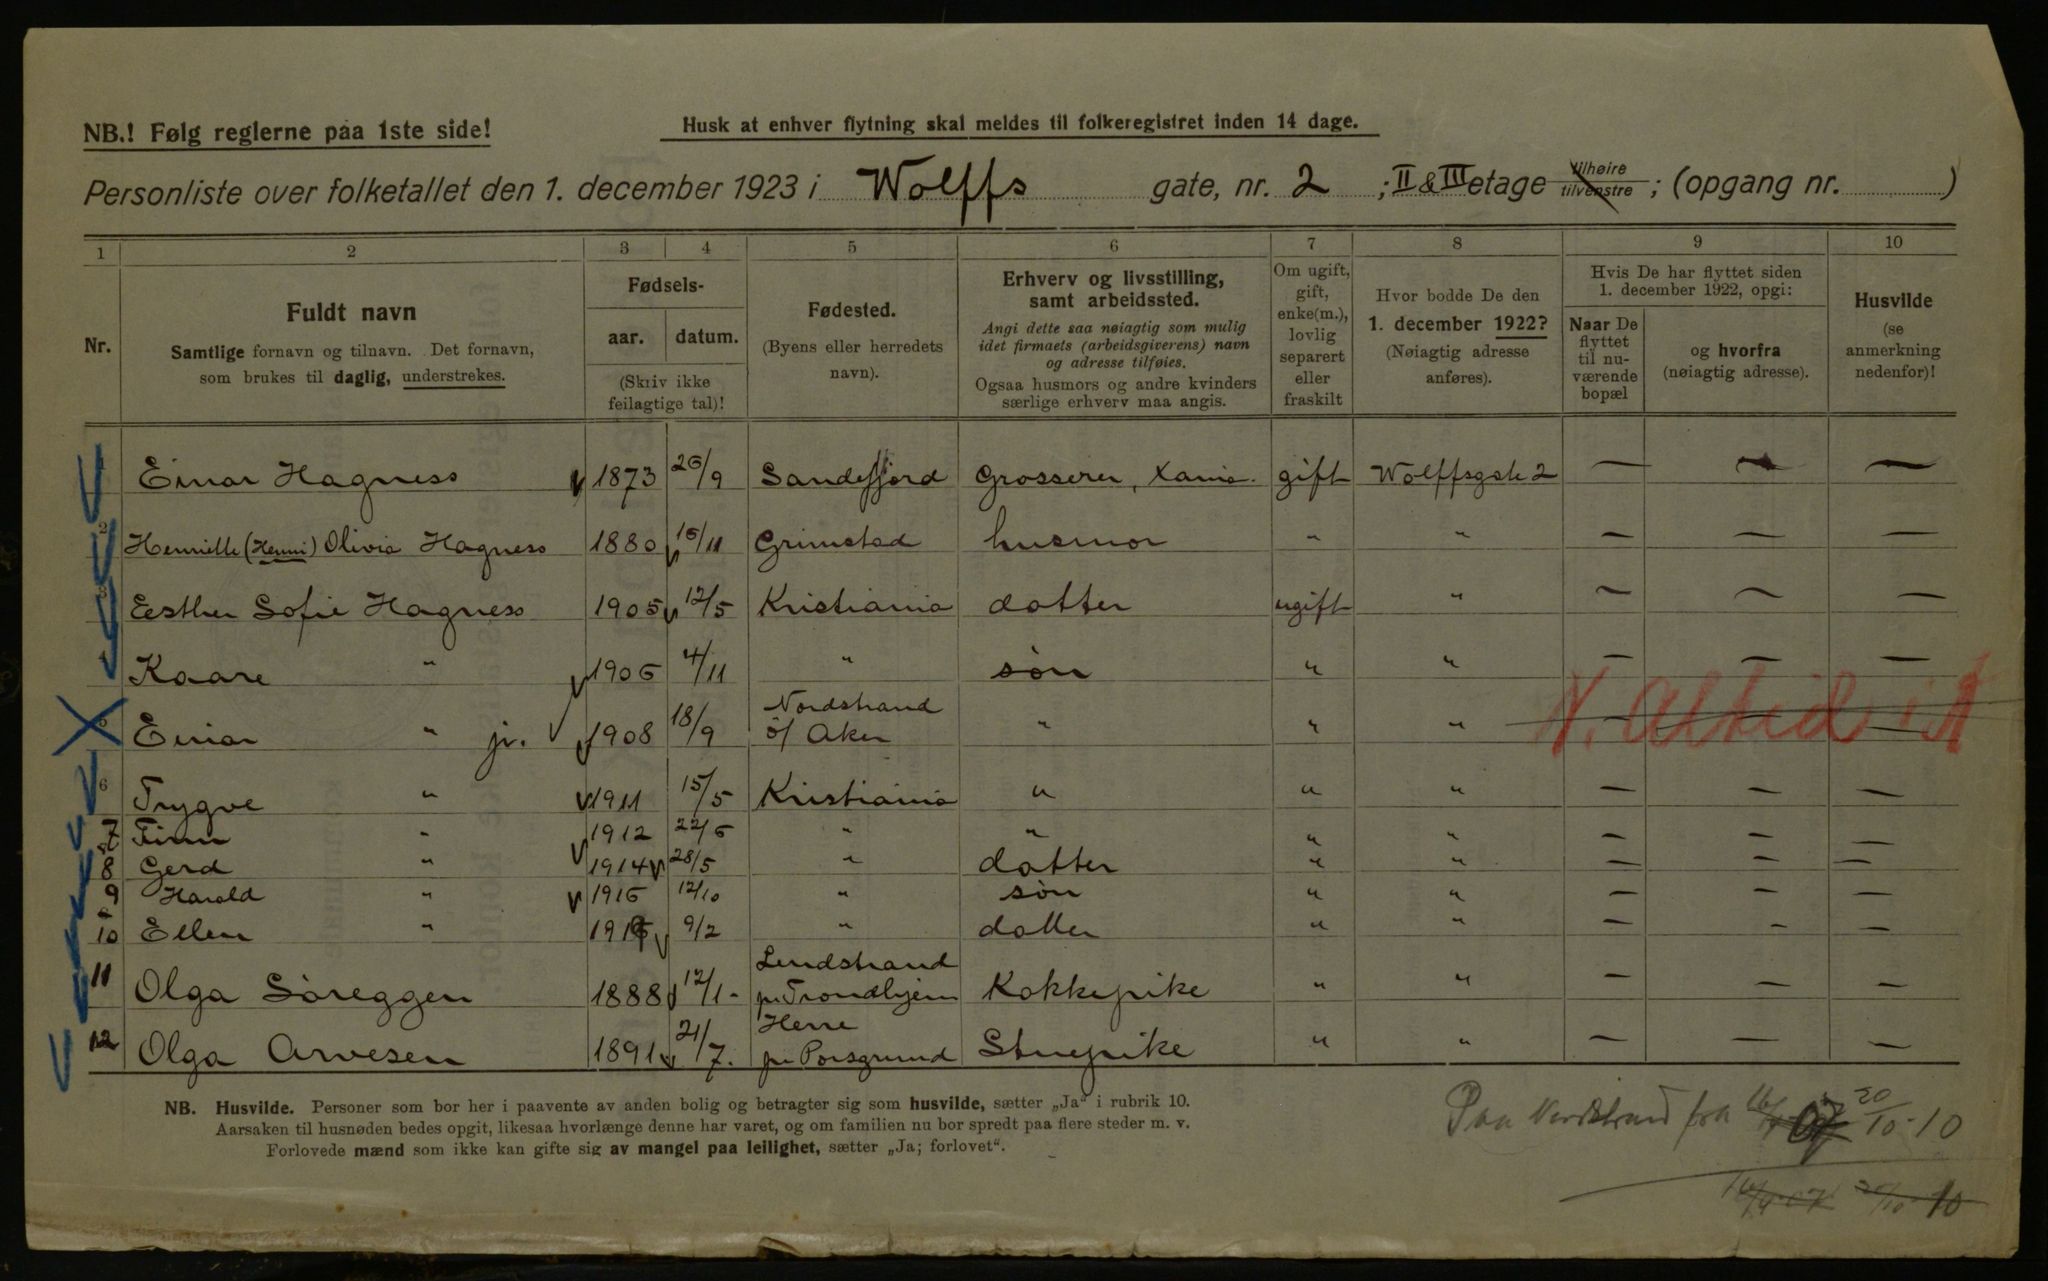 NB.! Følg reglerne paa 1ste side!
Husk at enhver flytning skal meldes til folkeregistret inden 14 dage.
Personliste over folketallet den 1. december 1923 i Wolffs gate, nr. 2 ; II & III etage tilhøire tilvenstre ; (opgang nr. )
1 2 3 4 5 6 7 8 9 10
Nr.
Fuldt navn
Samtlige fornavn og tilnavn. Det fornavn,
som brukes til daglig, understrekes.
Fødsels-
aar. datum.
(Skriv ikke
feilagtige tal)!
Fødested.
(Byens eller herredets
navn).
Erhverv og livsstilling,
samt arbeidssted.
Angi dette saa nøiagtig som mulig
idet firmaets (arbeidsgiverens) navn
og adresse tilføies.
Ogsaa husmors og andre kvinders
særlige erhverv maa angis.
Om ugift,
gift,
enke(m.),
lovlig
separert
eller
fraskilt
Hvor bodde De den
1. december 1922?
(Nøiagtig adresse
anføres).
Hvis De har flyttet siden
1. december 1922, opgi:
Naar De
flyttet
til nu-
værende
bopæl
og hvorfra
(nøiagtig adresse).
Husvilde
(se
anmerkning
nedenfor)!
1 Einar Hagness 1873 26/9 Sandefjord Grosserer, Xania. gift Wolffsgate 2 — — —
2 Henriette (Henni) Olivia Hagness 1880 16/11 Grimstad husmor " " — — —
3 Eesther Sofie Hagness 1905 12/5 Kristiania datter ugift " — — —
4 Kaare " 1906 4/11 " søn " " — — —
5 Einar " jr. 1908 18/9 Nordstrand i/ Aker " " " — — —
N. Altid i N
6 Trygve " 1911 15/5 Kristiania " " " — — —
7 Finn " 1912 22/6 " " " " — — —
8 Gerd " 1914 28/5 " datter " " — — —
9 Harald " 1916 12/10 " søn " " — — —
10 Ellen " 9/2 " datter " " — — —
11 Olga Søreggen 1888 12/1 - pr. Trondhjem Kokkepike " " — — —
12 Olga Arvesen 1891 21/7. Herre pr Porsgrund Stuepike " " — — —
NB. Husvilde. Personer som bor her i paavente av anden bolig og betragter sig som husvilde, sætter „Ja" i rubrik 10.
Aarsaken til husnøden bedes opgit, likesaa hvorlænge denne har varet, og om familien nu bor spredt paa flere steder m. v.
Forlovede mænd som ikke kan gifte sig av mangel paa leilighet, sætter „Ja; forlovet".
Paa Nordstrand fra 07 20/10-10
16/9-07 20/10 10